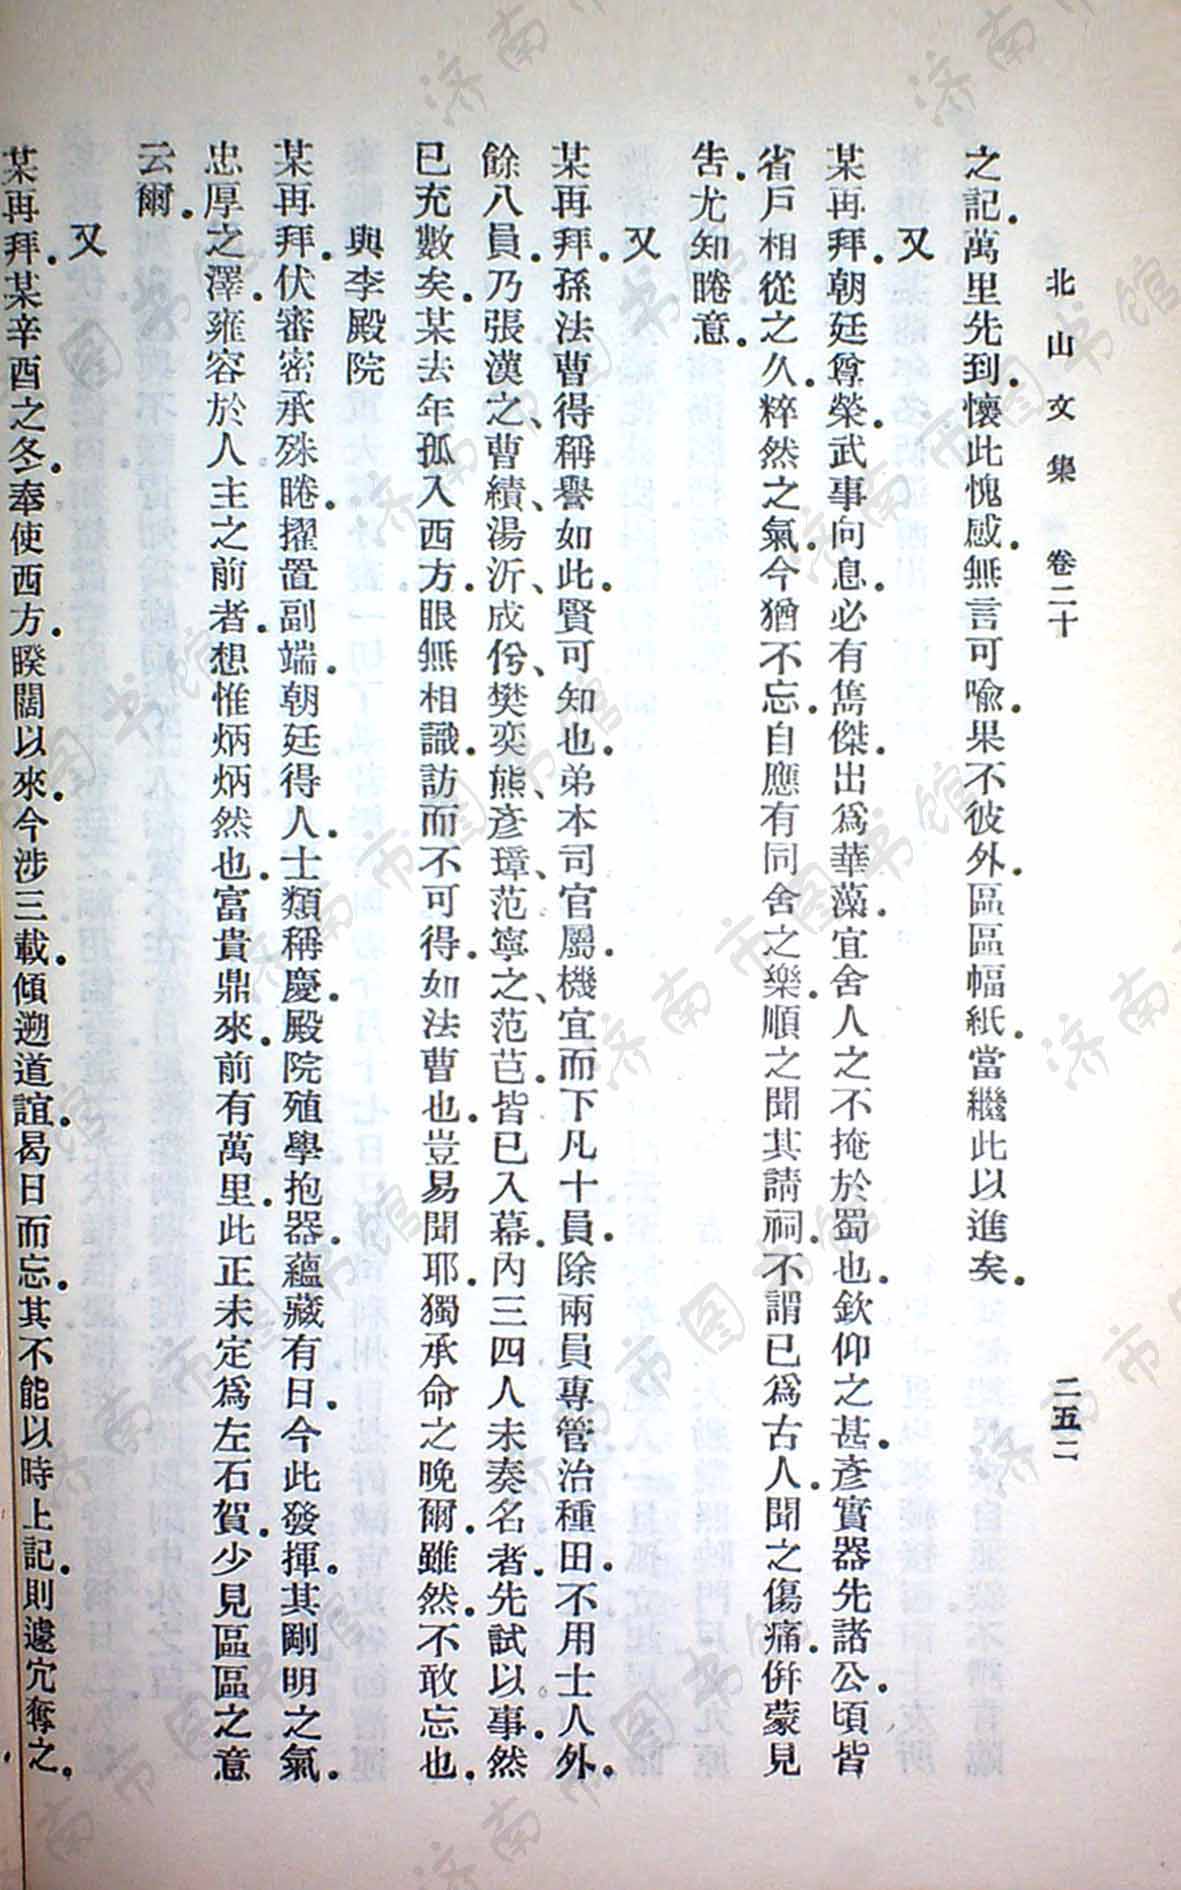 北山文集 卷二十 二五二
之記。萬里先到。懷此愧感。無言可喻。果不彼外。區區幅紙。當繼此以進矣。
又
某再拜。朝廷尊榮。武事向息。必有雋傑。出爲華藻。宜舍人之不掩於蜀也。欽仰之甚。彥實器先諸公。頃皆
省戶相從之久。粹然之氣。今猶不忘。自應有同舍之樂。順之聞其請祠。不謂已爲古人。聞之傷痛。倂蒙見
告。尤知睠意。
又
某再拜。孫法曹得稱譽如此。賢可知也。弟本司官屬。機宜而下凡十員。除兩員專管治種田。不用士人外。
餘八員。乃張漢之、曹績、湯沂、成伱、樊奕、熊彥璋、范寧之、范芑。皆已入幕。內三四人未奏名者。先試以事。然
已充數矣。某去年孤入西方。眼無相識。訪而不可得。如法曹也。豈易聞耶。獨承命之晚爾。雖然。不敢忘也。
與李殿院
某再拜。伏審密承殊睠。擢置副端。朝廷得人。士類稱慶。殿院殖學抱器。蘊藏有日。今此發揮。其剛明之氣。
忠厚之澤。雍容於人主之前者。想惟炳炳然也。富貴鼎來。前有萬里。此正未定爲左右賀。少見區區之意
云爾。
又
某再拜。某辛酉之冬。奉使西方。睽闊以來。今涉三載。傾遡道誼。曷日而忘。其不能以時上記。則遽宂奪之。
济南市图书馆